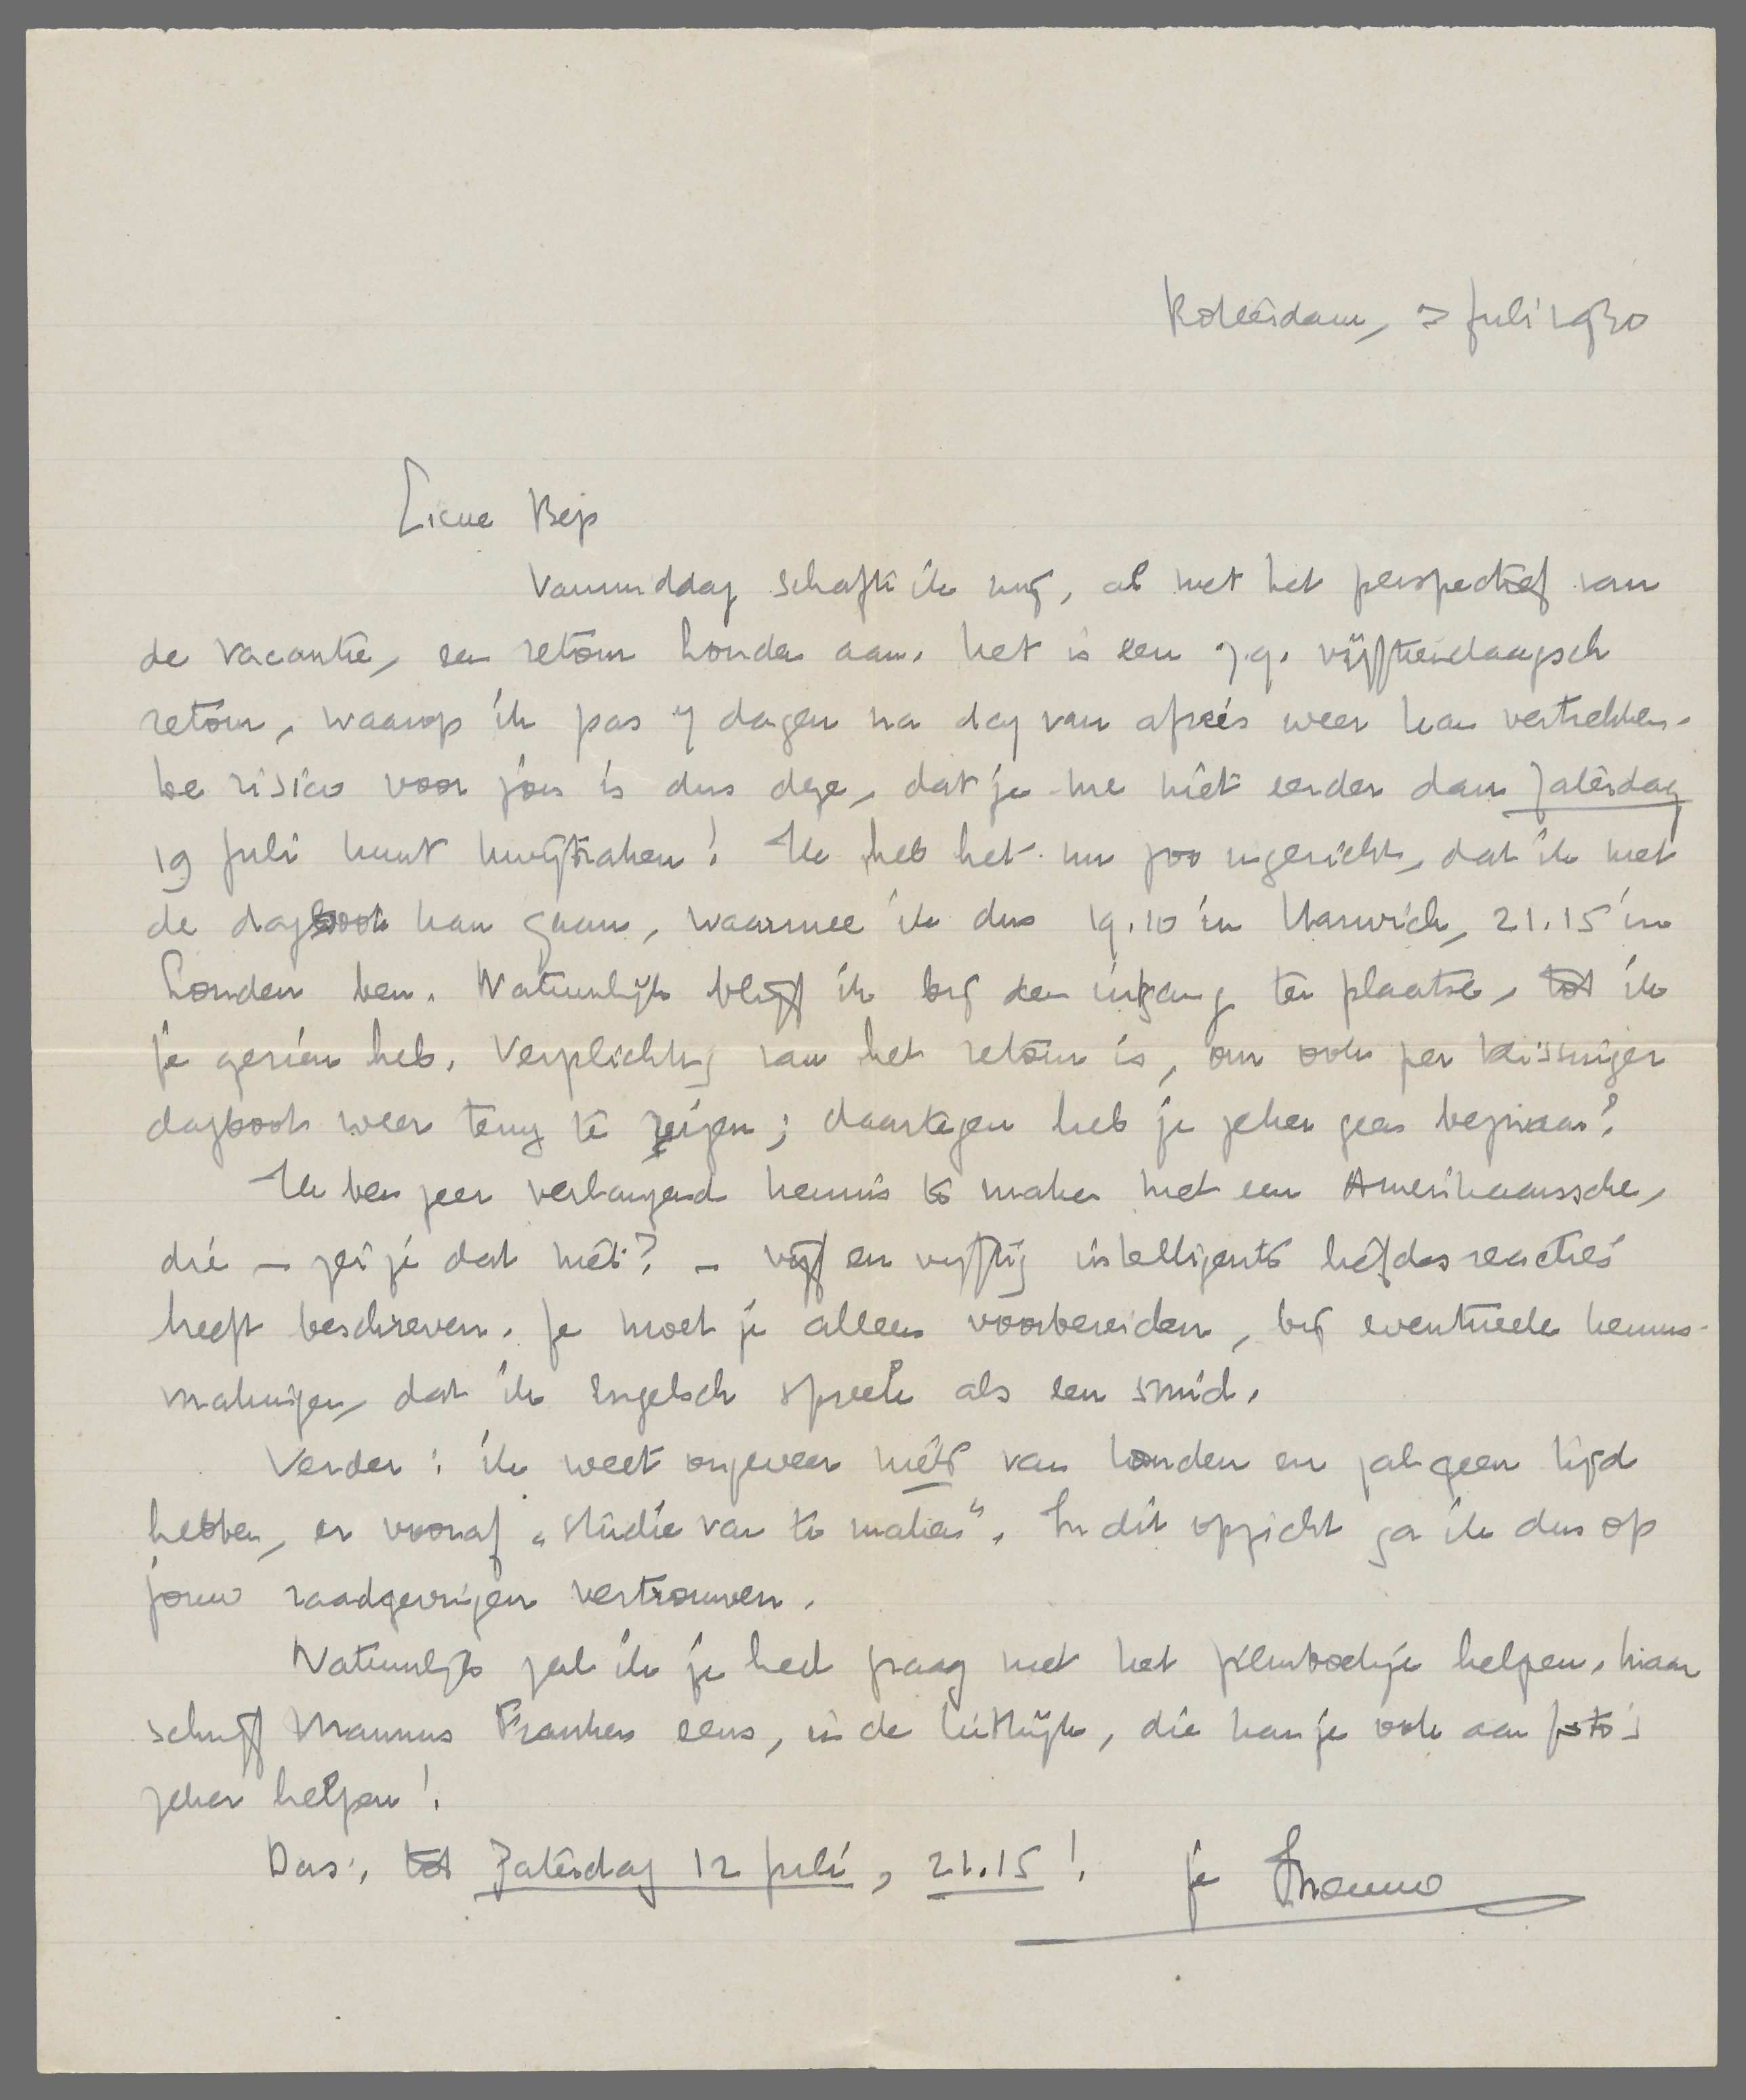 Rotterdam, 7 Juli 1930
Lieve Bep
Vanmiddag schafte ik mij, al met het perspectief van
de vacantie, een retour Londen aan. Het is een z.g. vijftiendaagsch
retour, waarop ik pas 7 dagen na dag van afreis weer kan vertrekken.
De risico voor jou is dus deze, dat je me niet eerder dan Zaterdag
19 Juli kunt kwijtraken! Ik heb het nu zoo ingericht, dat ik met
de dagboot kan gaan, waarmee ik dus 19.10 in Harwich, 21.15 in
Londen ben. Natuurlijk blijf ik bij den ingang ter plaatse, tot ik
je gezien heb. Verplichting van het retour is, om ook per Vlissinger
dagboot weer terug te reizen; daartegen heb je zeker geen bezwaar?
Ik ben zeer verlangend kennis te maken met een Amerikaansche,
die – zei je dat niet? – vijf en vijftig intelligente liefdesreacties
heeft beschreven. Je moet je alleen voorbereiden, bij eventueele kennis-
makingen, dat ik Engelsch spreek als een smid.
Verder: ik weet ongeveer niets van Londen en zal geen tijd
hebben, er vooraf „studie van te maken". In dit opzicht ga ik dus op
jouw raadgevingen vertrouwen.
Natuurlijk zal ik je heel graag met het filmboekje helpen. Maar
schrijf Mannus Franken eens, in de Uitkijk, die kan je ook aan foto's
zeker helpen!
Dus, tot Zaterdag 12 Juli, 21.15! je Menno